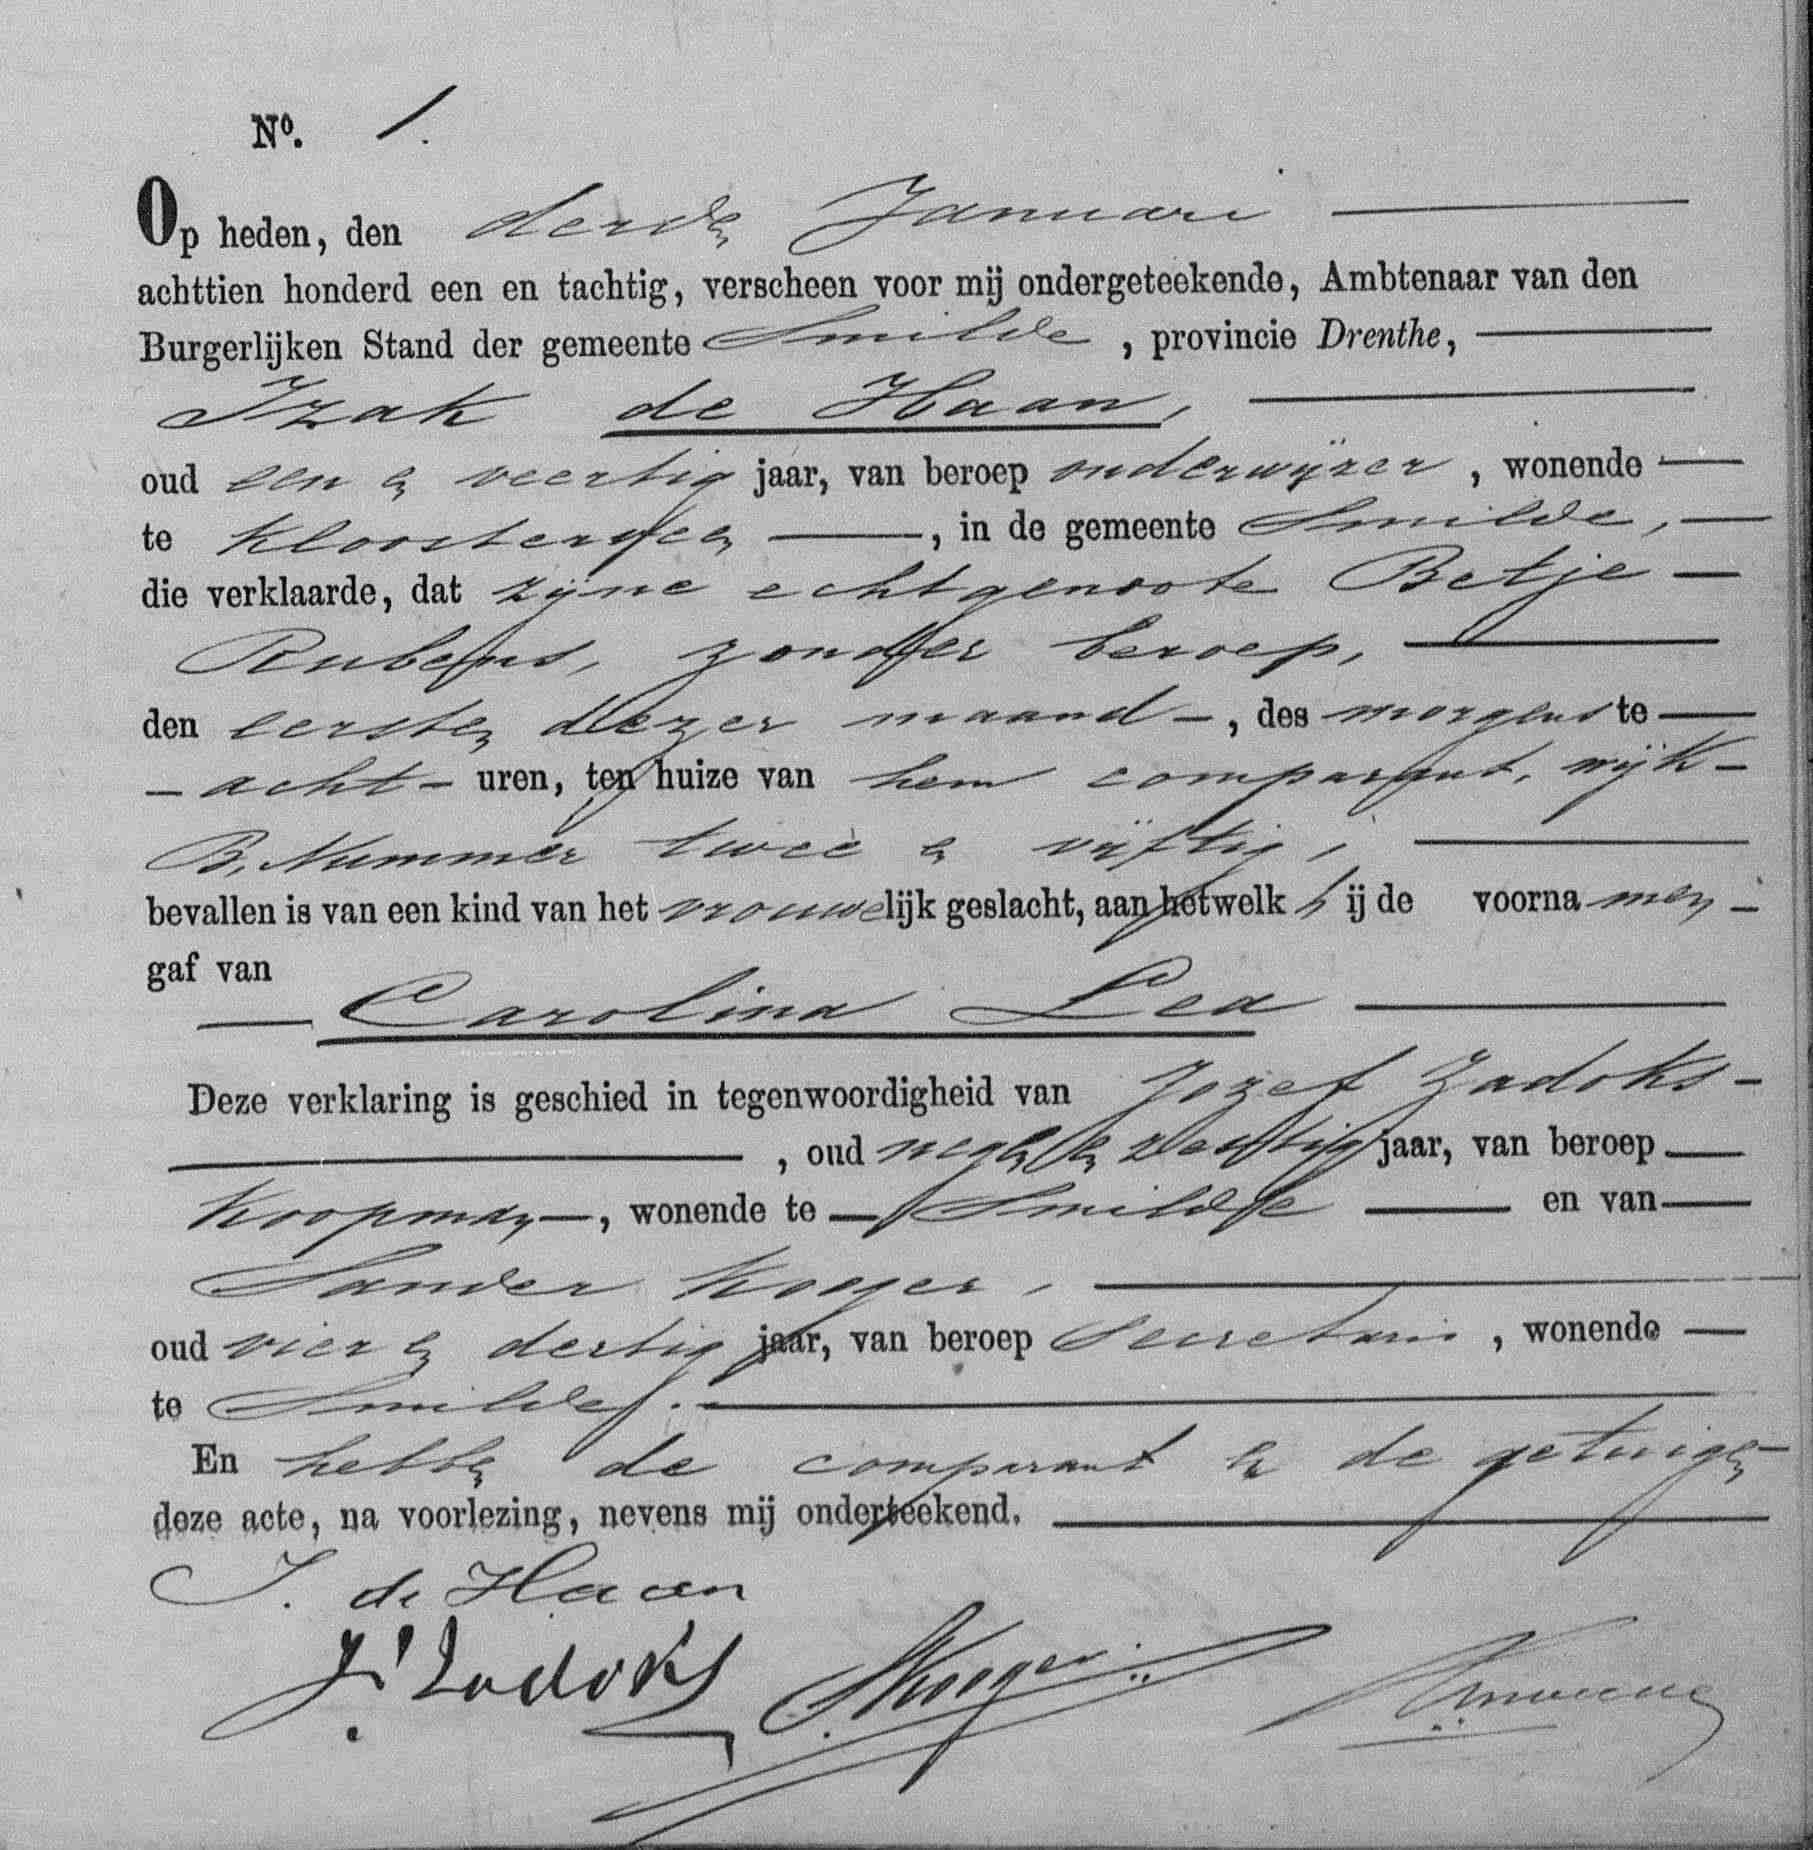 No. 1.
Op heden, den derden Januari
achttien honderd een en tachtig, verscheen voor mij ondergeteekende, Ambtenaar van den
Burgerlijken Stand der gemeente Smilde, provincie Drenthe,
Izak de Haan,
oud een en veertig jaar, van beroep onderwijzer, wonende
te Kloosterveen, in de gemeente Smilde,
die verklaarde, dat zijne echtgenoote Betje
Rubens, zonder beroep,
den eersten dezer maand, des morgens te
acht uren, ten huize van hem comparant, wijk
B, Nummer twee en vijftig,
bevallen is van een kind van het vrouwelijk geslacht, aan hetwelk hij de voornamen
gaf van
Carolina Lea
Deze verklaring is geschied in tegenwoordigheid van Jozef Zadoks
, oud negen en zestig jaar, van beroep
Koopman, wonende te Smilde en van
Sander Kooger,
oud vier en dertig jaar, van beroep Secretaris, wonende
te Smilde.
En hebben de comparant en de getuigen
deze acte, na voorlezing, nevens mij onderteekend.
I. de Haan
Js Zadoks SKooger